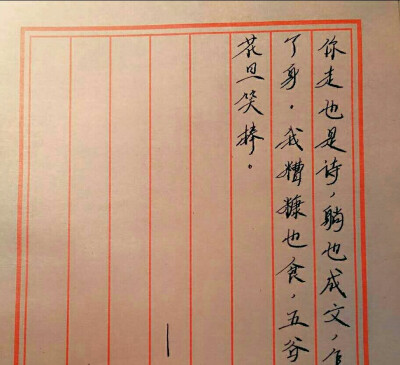 你走也是诗，躺也成文，
了身。我糟糠也食，五谷
花旦笑捧。